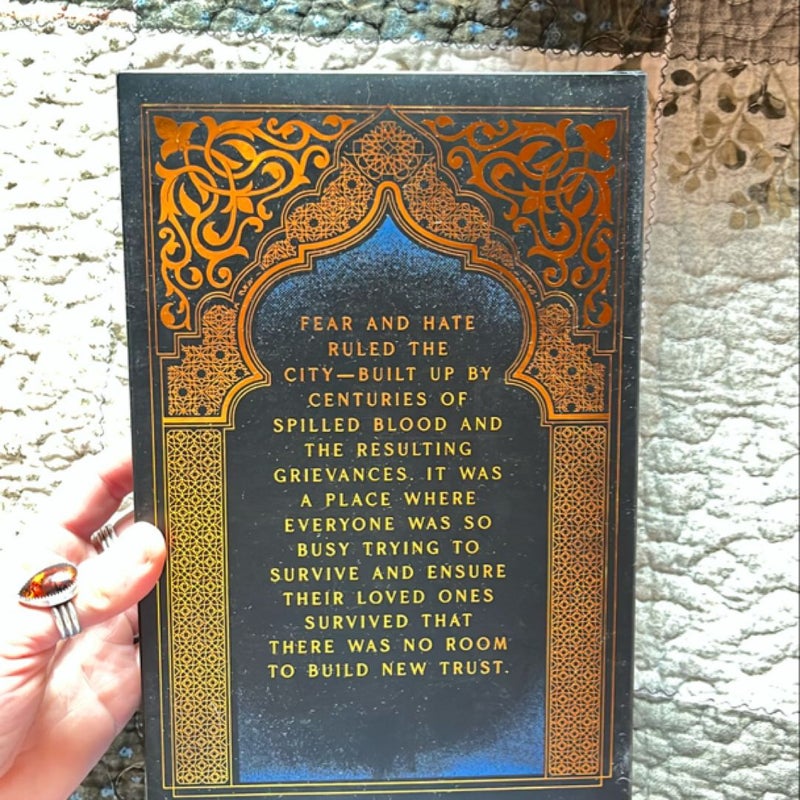 FEAR AND HATE
RULED THE
CITY—BUILT UP BY
CENTURIES OF
SPILLED BLOOD AND
THE RESULTING
GRIEVANCES. IT WAS
A PLACE WHERE
EVERYONE WAS SO
BUSY TRYING TO
SURVIVE AND ENSURE
THEIR LOVED ONES
SURVIVED THAT
THERE WAS NO ROOM
TO BUILD NEW TRUST.